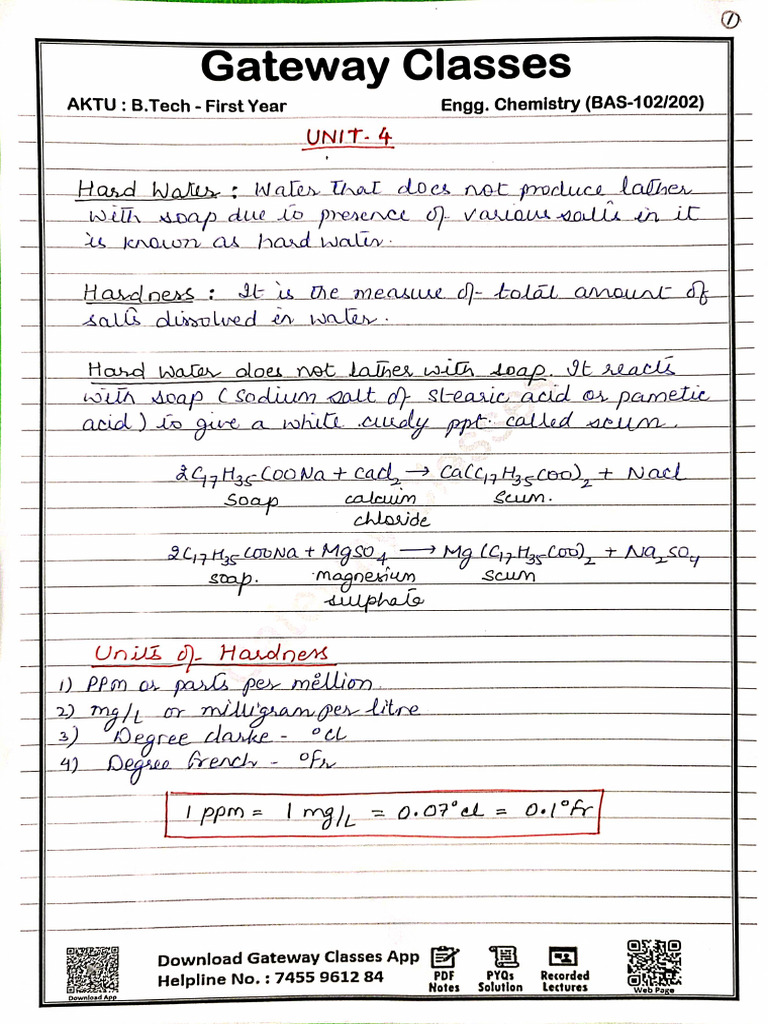 1
Gateway Classes
AKTU : B.Tech - First Year Engg. Chemistry (BAS-102/202)
UNIT-4
Hard Water : Water that does not produce lather
with soap due to presence of various salts in it
is known as hard water.
Hardness : It is the measure of total amount of
salts dissolved in water.
Hard Water does not lather with soap. It reacts
with soap (sodium salt of stearic acid or pametic
acid) to give a white curdy ppt. called scum.
2C₁₇H₃₅COONa + CaCl₂ → Ca(C₁₇H₃₅COO)₂ + NaCl
soap calcium scum.
chloride
2C₁₇H₃₅COONa + MgSO₄ → Mg(C₁₇H₃₅COO)₂ + Na₂SO₄
soap. magnesium scum
sulphate
Units of Hardness
1) PPm or parts per million
2) mg/L or milligram per litre
3) Degree clarke - °cl
4) Degree French - °Fr
1 ppm = 1 mg/L = 0.07°cl = 0.1°Fr
Download Gateway Classes App
Helpline No. : 7455 9612 84
PDF Notes
PYQs Solution
Recorded Lectures
Download App
Web Page